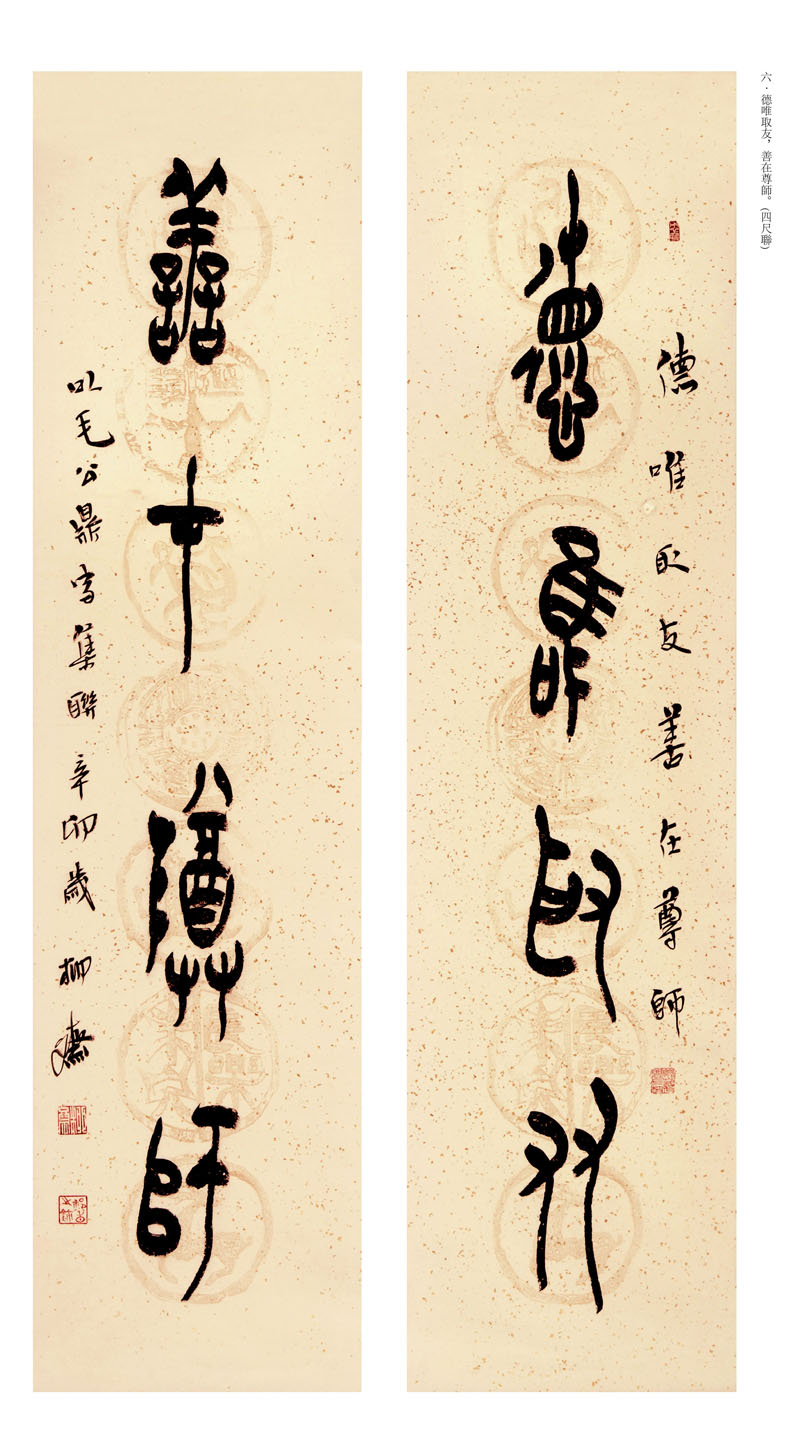 六·德唯取友，善在尊師。(四尺聯)
德唯取友善在尊師
德唯取友
善在尊師
以毛公鼎字集聯辛卯歲柳齋